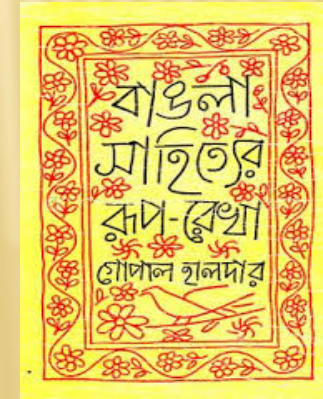 বাঙলা
সাহিত্যের
রূপ-রেখা
গোপাল হালদার